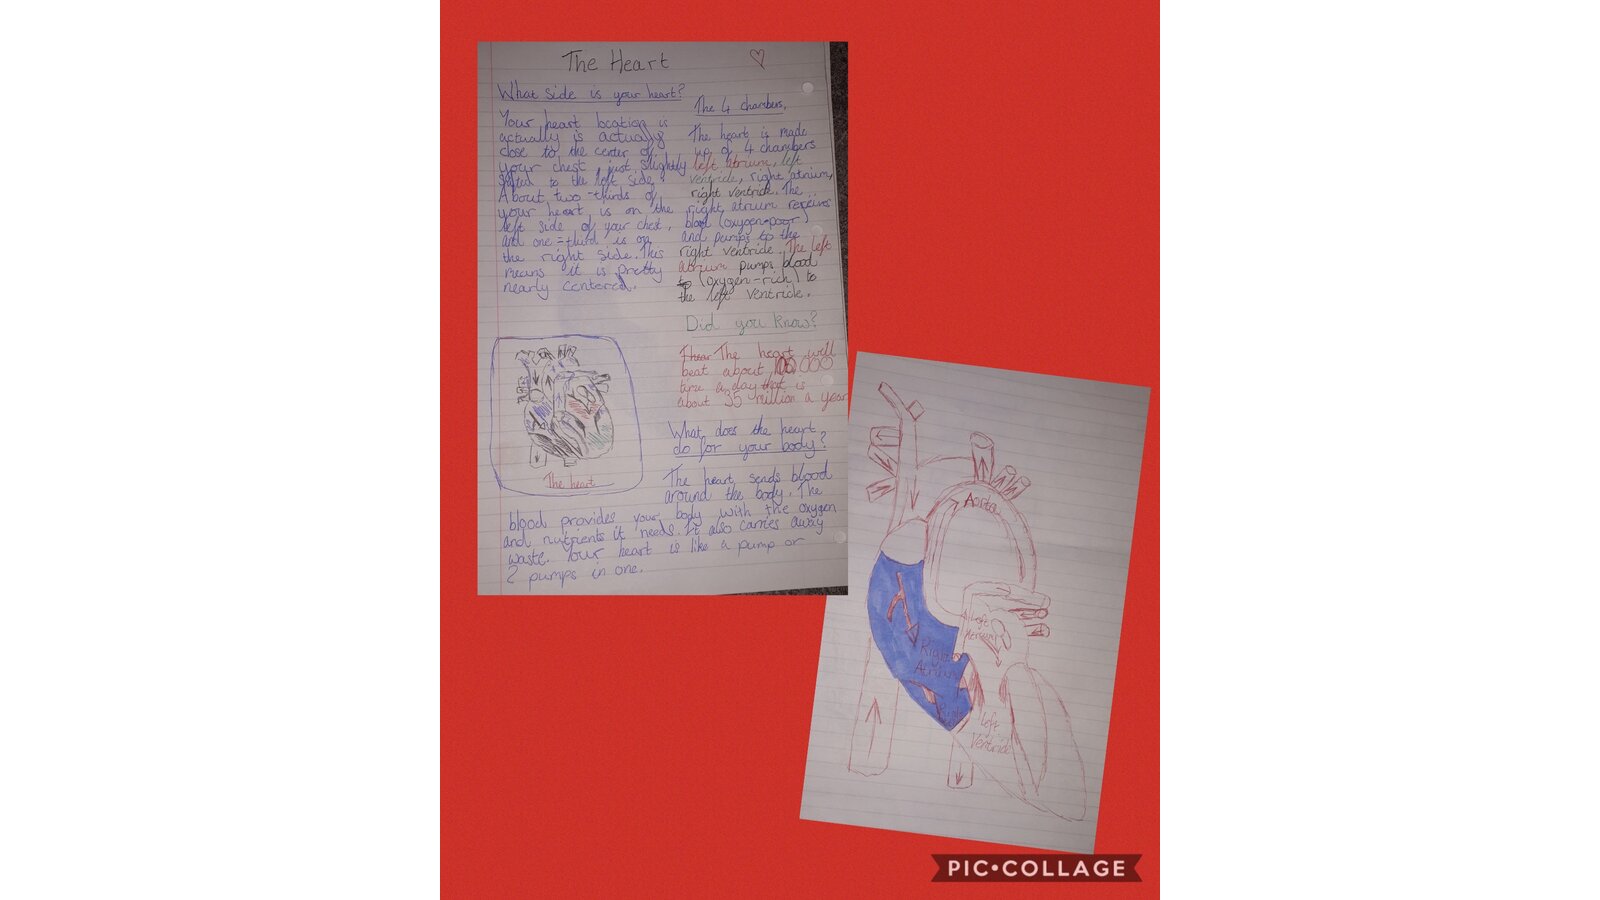 The Heart
What side is your heart?
Your heart location is
actually is actually
close to the center of
your chest, just slightly
to the left side.
About two-thirds of
your heart is on the
left side of your chest,
and one-third is on
the right side. This
means it is pretty
nearly centered.
The heart
The 4 chambers,
The heart is made
up of 4 chambers
left atrium, left
ventricle, right atrium,
right ventricle. The
right atrium receives
blood (oxygen-poor)
and pumps to the
right ventricle. The left
atrium pumps blood
to (oxygen-rich) to
the left ventricle.
Did you know?
The heart will
beat about 100000
time a day that is
about 35 million a year
What does the heart
do for your body?
The heart sends blood
around the body. The
blood provides your body with the oxygen
and nutrients it needs. It also carries away
waste. Your heart is like a pump or
2 pumps in one.
Aorta
Left
Right
Atrium
Left
Ventricle
PIC•COLLAGE